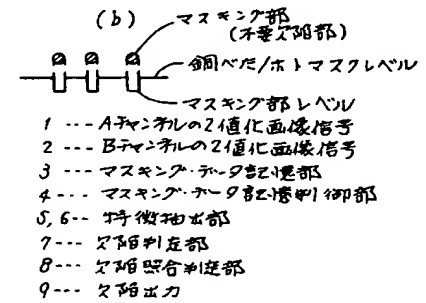 (b)
マスキング部
(不要欠陥部)
銅べた/ホトマスクレベル
マスキング部レベル
1 --- Aチャンネルの2値化画像信号
2 --- Bチャンネルの2値化画像信号
3 --- マスキング・データ記憶部
4 --- マスキング・データ記憶制御部
5,6-- 特徴抽出部
7--- 欠陥判定部
8--- 欠陥照合判定部
9--- 欠陥出力